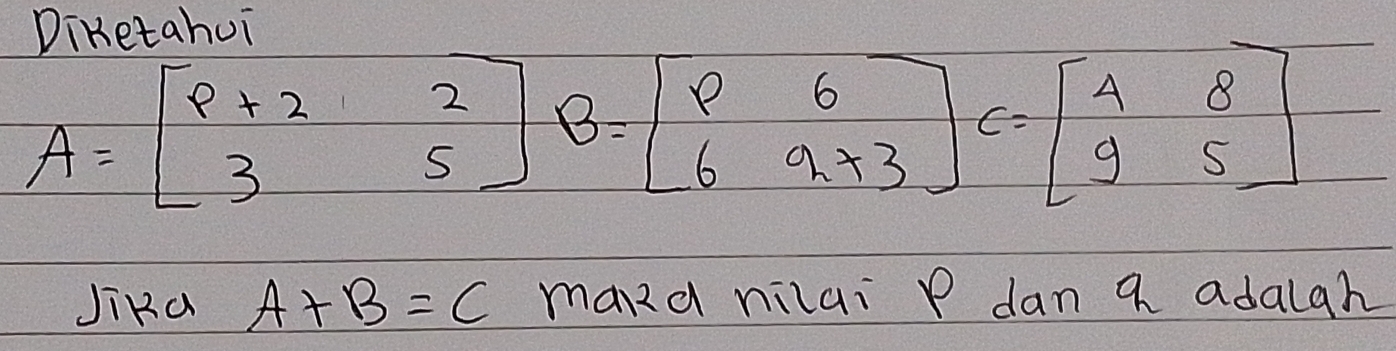 Diketahui
A = [P + 2 2 3 5] B = [P 6 6 q + 3] C = [4 8 9 5]
Jika A + B = C maka nilai P dan q adalah